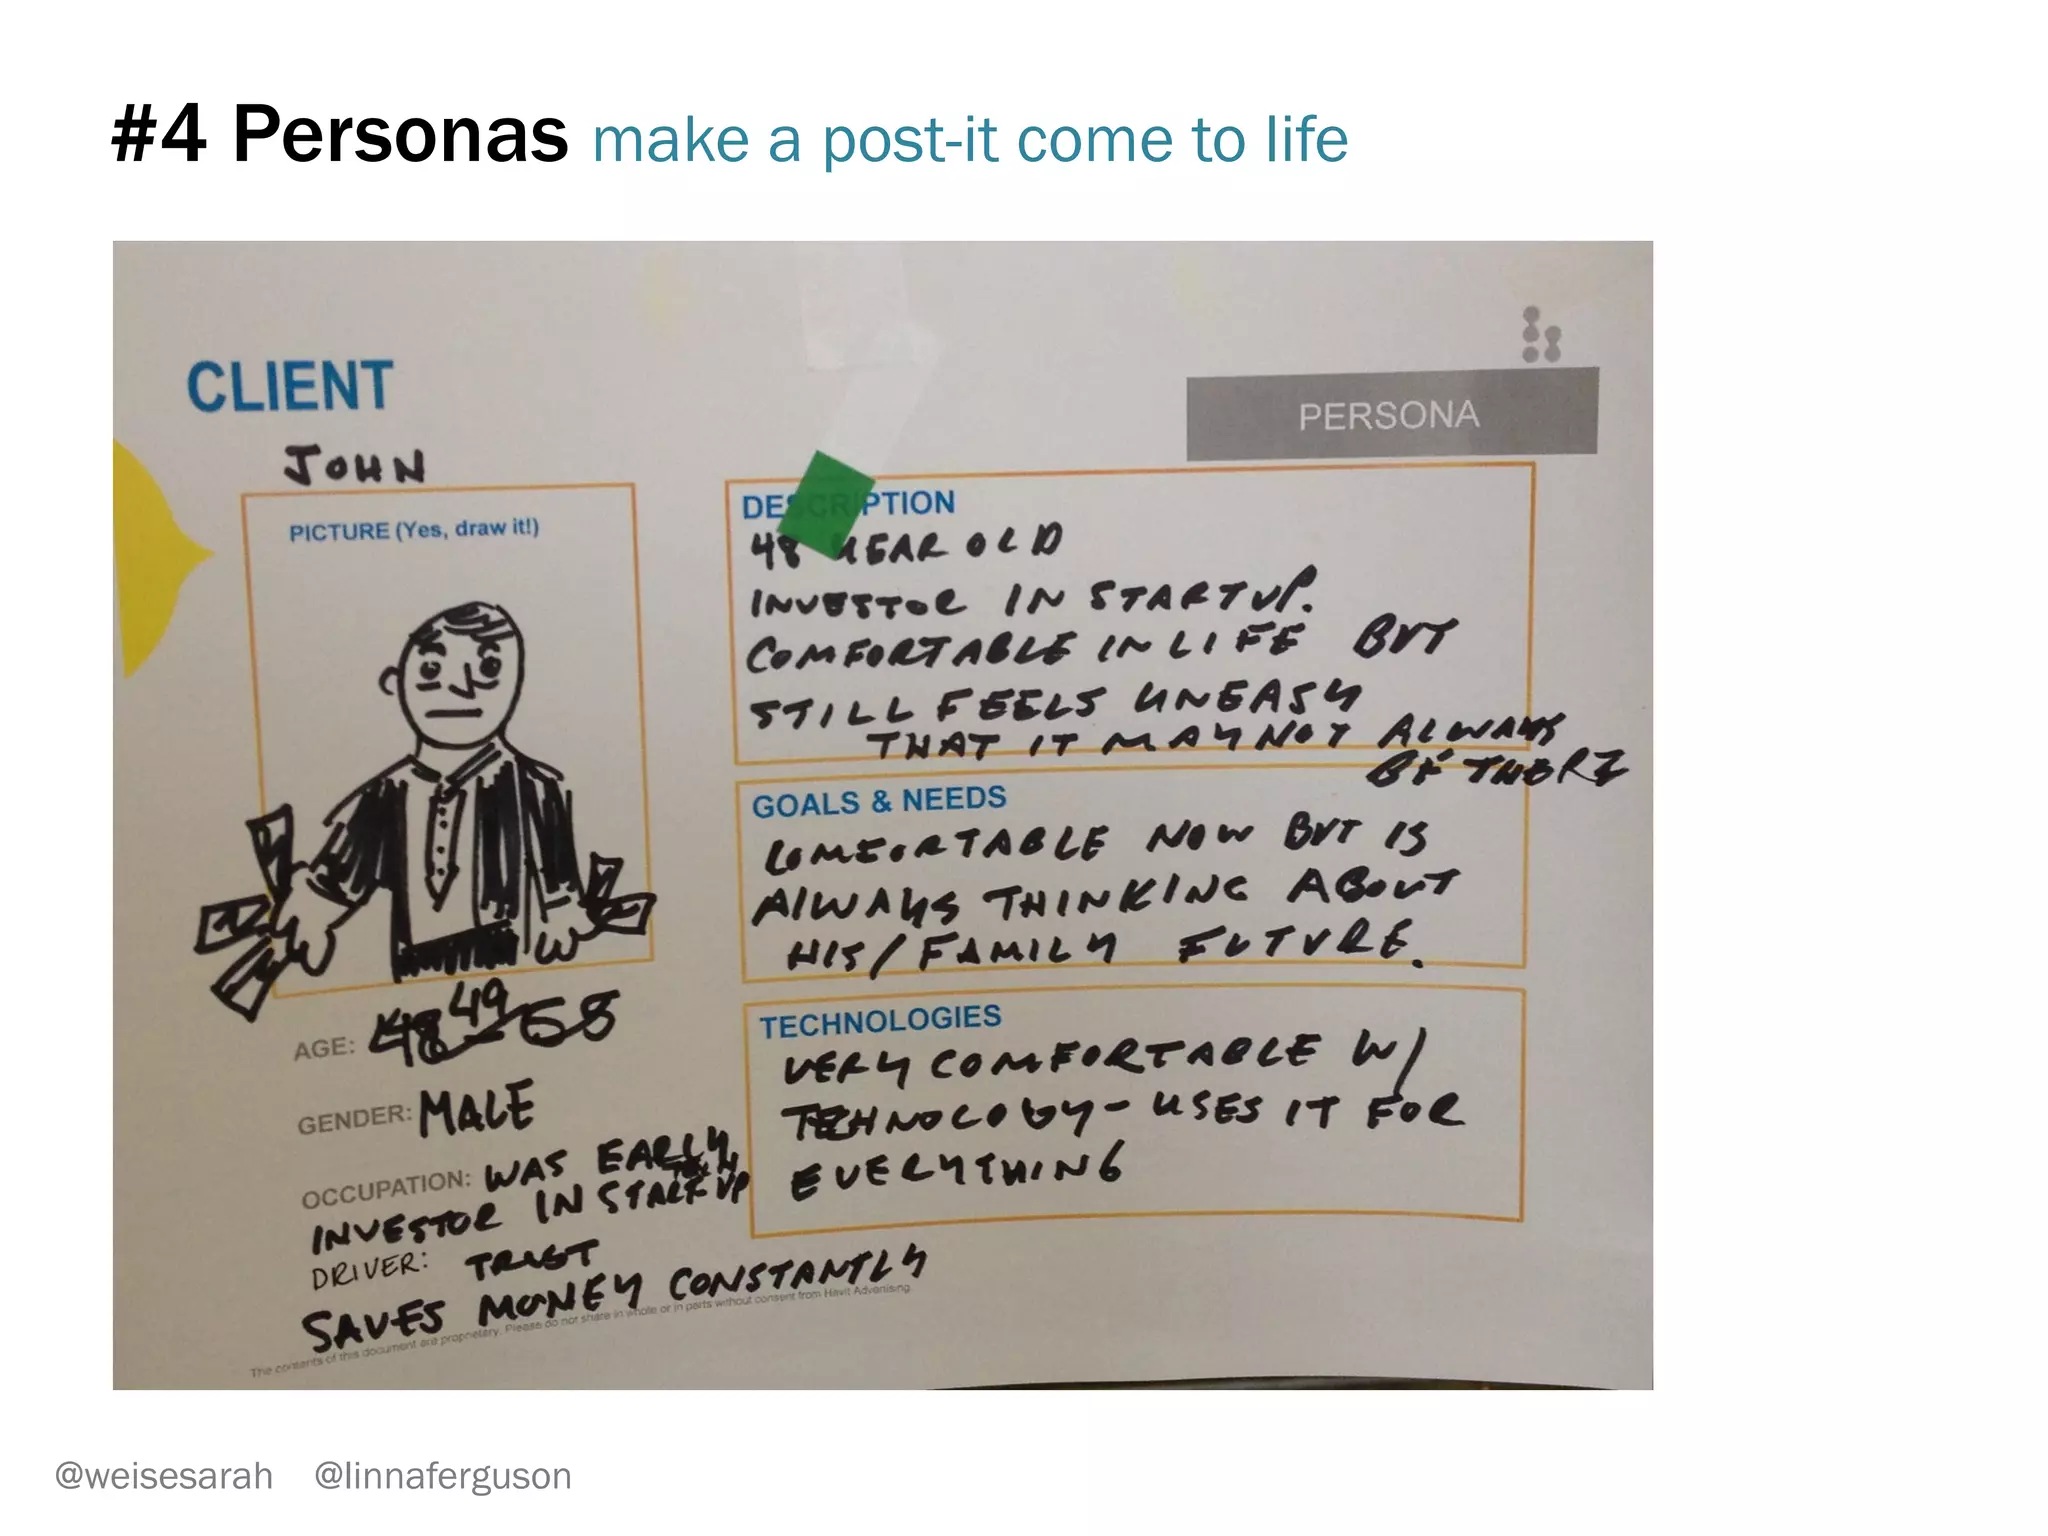 #4 Personas make a post-it come to life
CLIENT
PERSONA
JOHN
PICTURE (Yes, draw it!)
AGE: 48 49-58
GENDER: MALE
OCCUPATION: WAS EARLY
TECH
INVESTOR IN STARTUP
DRIVER: TRUST
SAVES MONEY CONSTANTLY
DESCRIPTION
48 YEAR OLD
INVESTOR IN STARTUP.
COMFORTABLE IN LIFE BUT
STILL FEELS UNEASY
THAT IT MAY NOT ALWAYS
BE THERE
GOALS & NEEDS
COMFORTABLE NOW BUT IS
ALWAYS THINKING ABOUT
HIS/FAMILY FUTURE.
TECHNOLOGIES
VERY COMFORTABLE W/
TECHNOLOGY - USES IT FOR
EVERYTHING
The contents of this document are proprietary. Please do not share in whole or in parts without consent from Havit Advertising
@weisesarah @linnaferguson